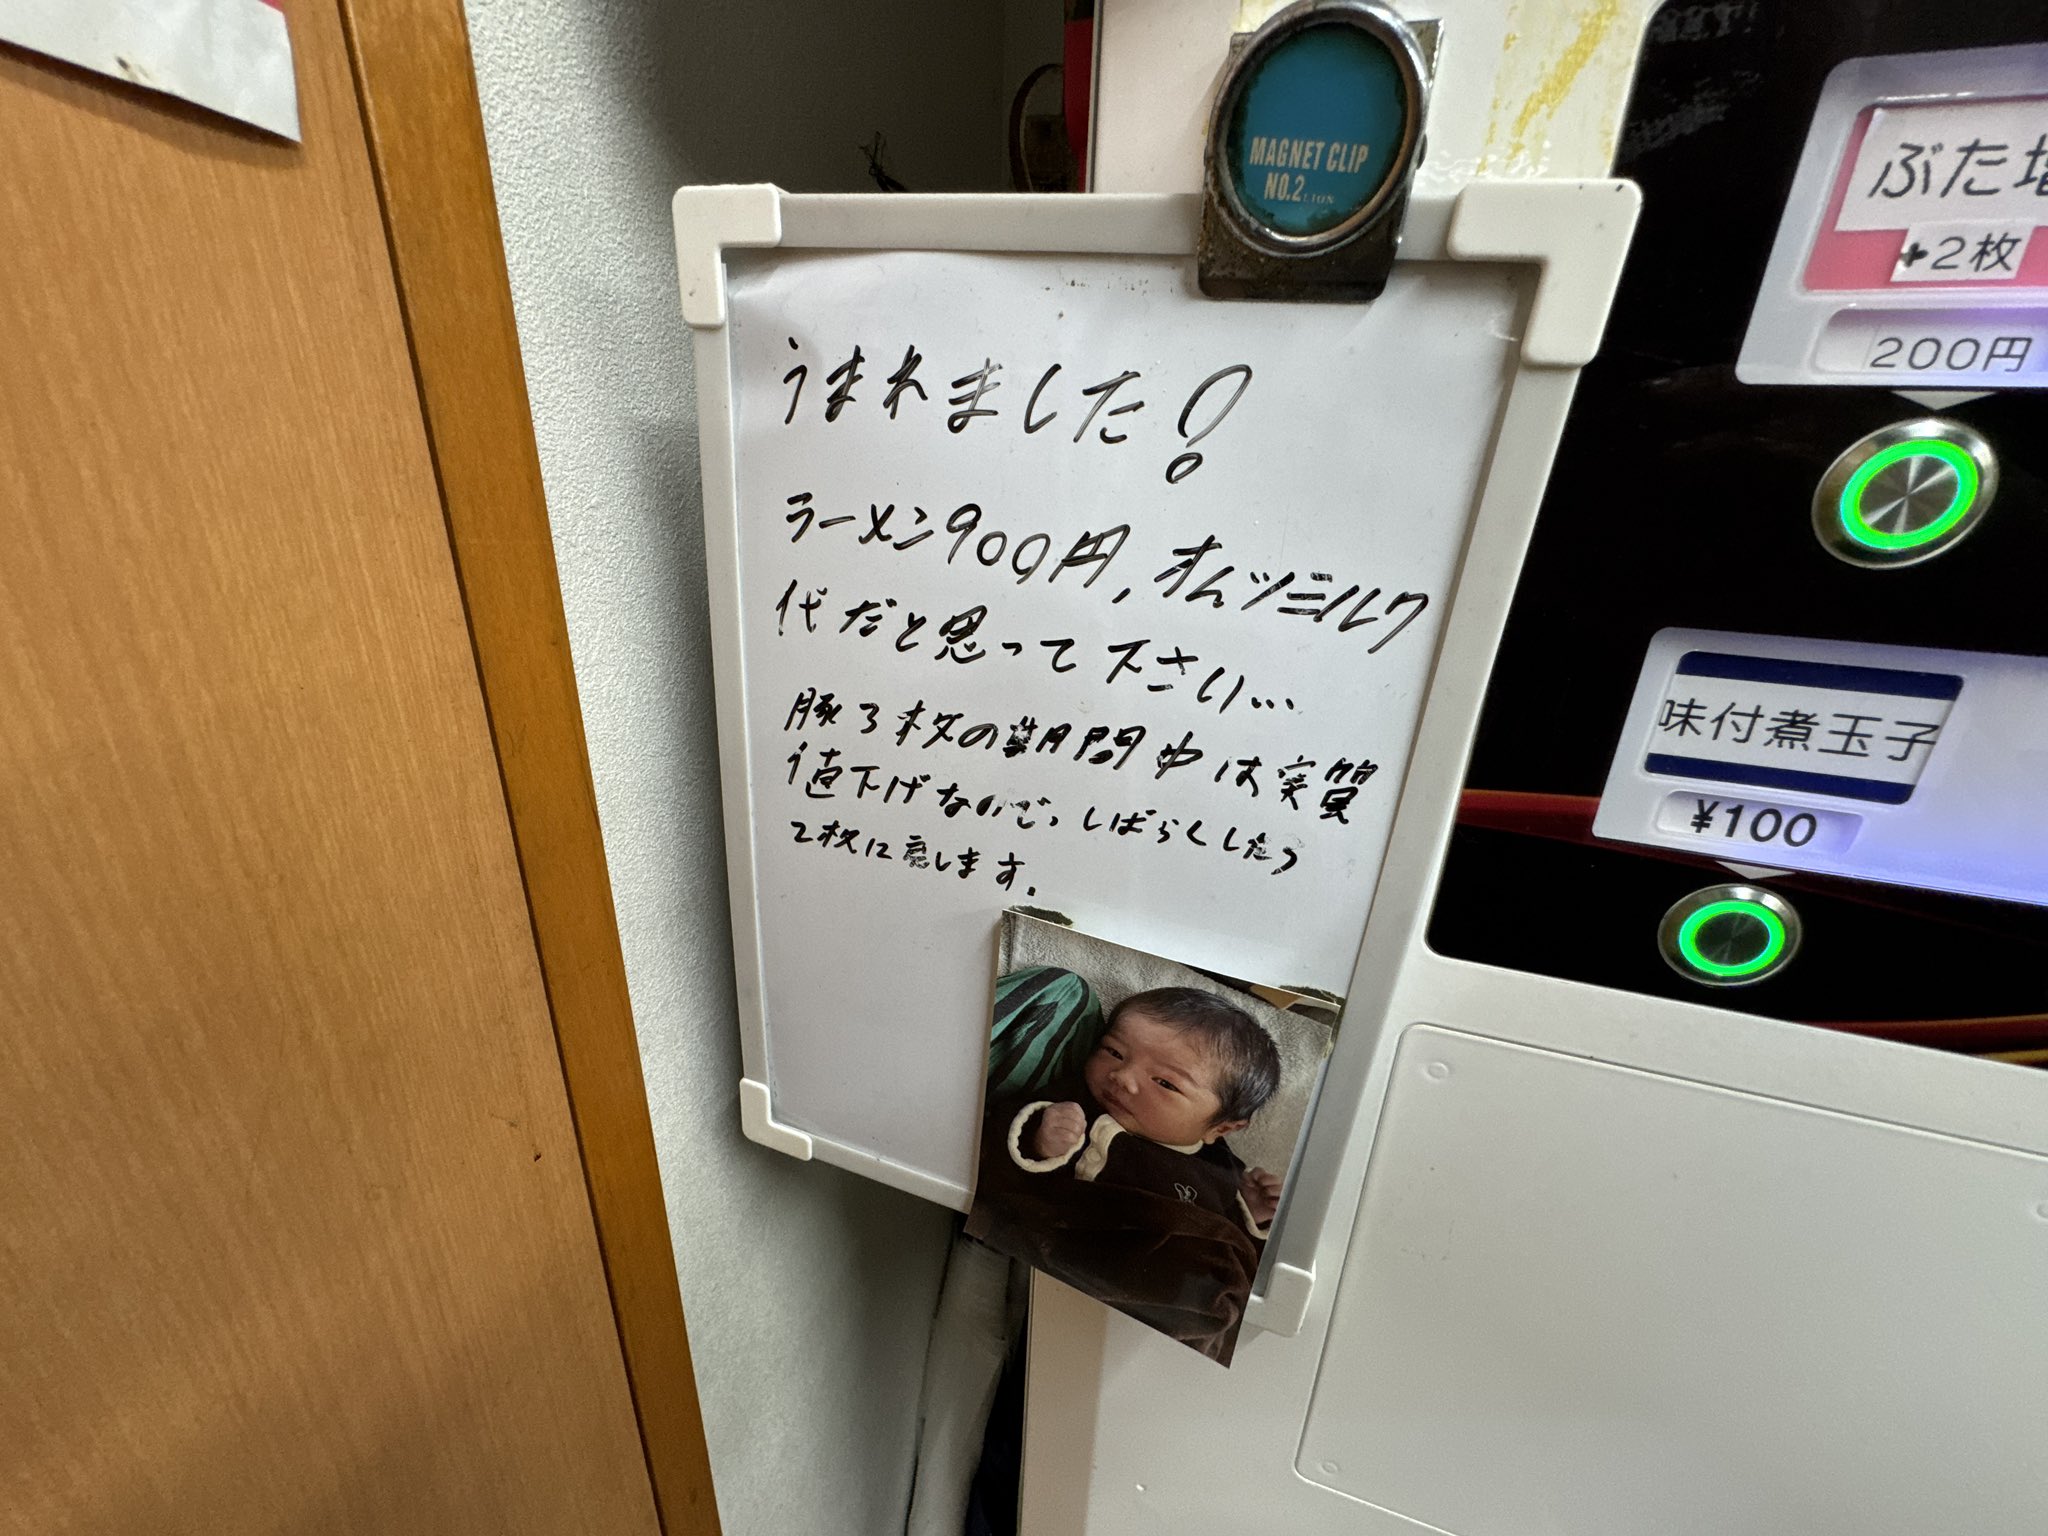 MAGNET CLIP
NO.2 LION
うまれました!
ラーメン900円、オムツミルク
代だと思って下さい…
豚3枚の期間中は実質
値下げなので、しばらくしたら
2枚に戻します。
ぶた増
+2枚
200円
味付煮玉子
¥100